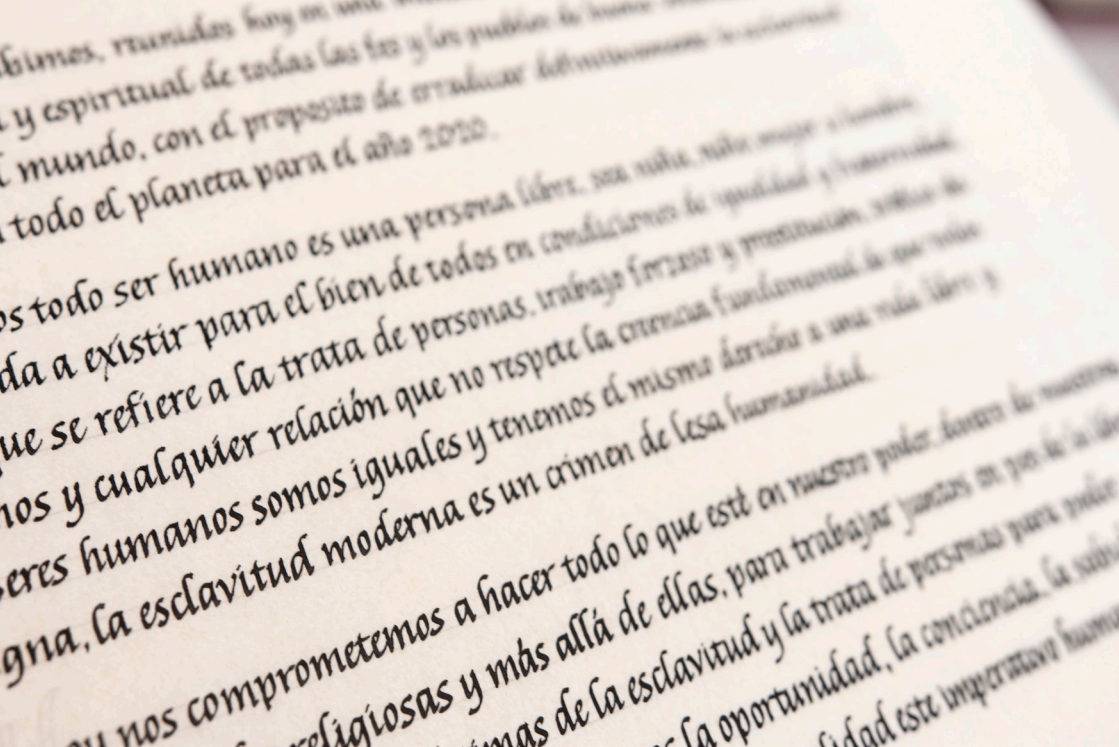 bimos, reunidos hoy en una
y espiritual de todas las fes y los pueblos de buena
mundo, con el proposito de erradicar definitivamente la esclavitud
todo el planeta para el año 2020.
os todo ser humano es una persona libre, sea niña, niño, mujer u hombre,
da a existir para el bien de todos en condiciones de igualdad y fraternidad.
ue se refiere a la trata de personas, trabajo forzoso y prostitución, tráfico de
nos y cualquier relación que no respete la creencia fundamental de que todos
seres humanos somos iguales y tenemos el mismo derecho a una vida libre y
gna, la esclavitud moderna es un crimen de lesa humanidad.
oy nos comprometemos a hacer todo lo que esté en nuestro poder, dentro de nuestras
religiosas y más allá de ellas, para trabajar juntos en pos de la
imas de la esclavitud y la trata de personas para
s la oportunidad, la conciencia, la
lidad este imperativo